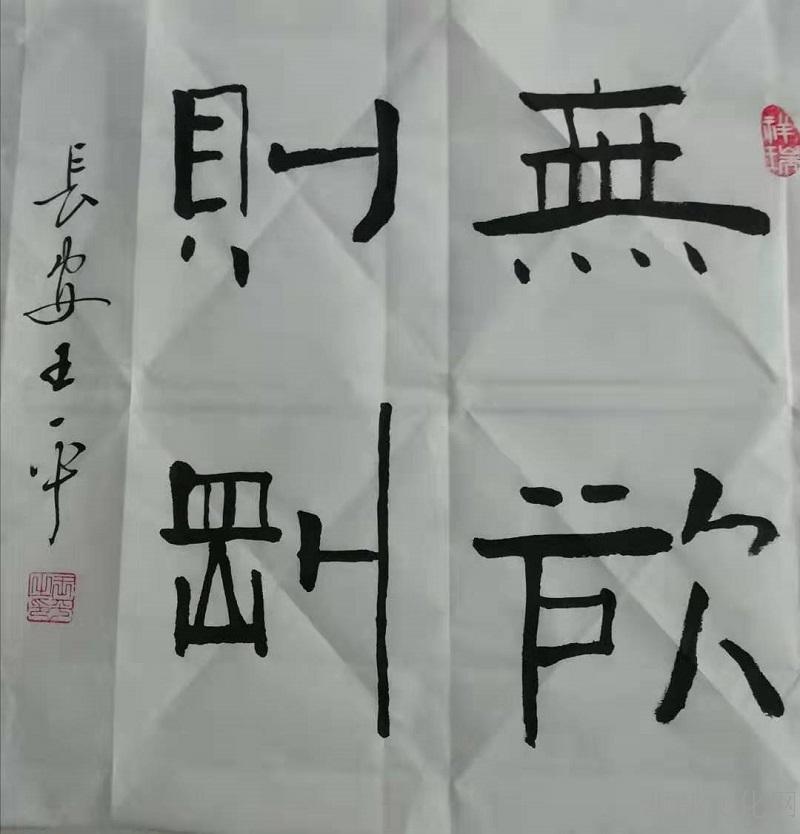 祥瑞
無欲
則剛
長安王平